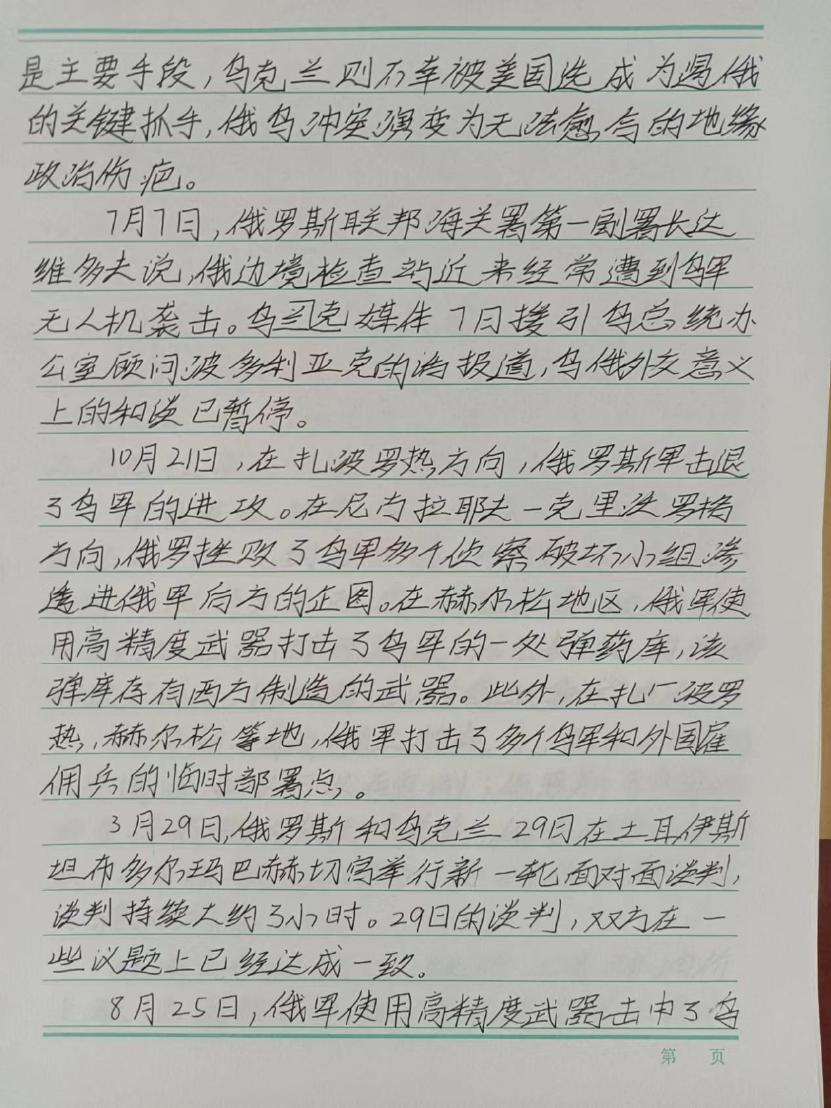 是主要手段，乌克兰则不幸被美国选成为遏俄
的关键抓手，俄乌冲突演变为无法愈合的地缘
政治伤疤。
7月7日，俄罗斯联邦海关署第一副署长达
维多夫说，俄边境检查站近来经常遭到乌军
无人机袭击。乌兰克媒体7日援引乌总统办
公室顾问波多利亚克的话报道，乌俄外交意义
上的和谈已暂停。
10月21日，在扎波罗热方向，俄罗斯军击退
了乌军的进攻。在尼古拉耶夫－克里沃罗格
方向，俄罗挫败了乌军多个侦察破坏小组渗
透进俄军后方的企图。在赫尔松地区，俄军使
用高精度武器打击了乌军的一处弹药库，该
弹库存有西方制造的武器。此外，在扎厂波罗
热，赫尔松等地，俄军打击了多个乌军和外国雇
佣兵的临时部署点。
3月29日，俄罗斯和乌克兰29日在土耳伊斯
坦布多尔玛巴赫切宫举行新一轮面对面谈判，
谈判持续大约3小时。29日的谈判，双方在一
些议题上已经达成一致。
8月25日，俄军使用高精度武器击中了乌
第 页